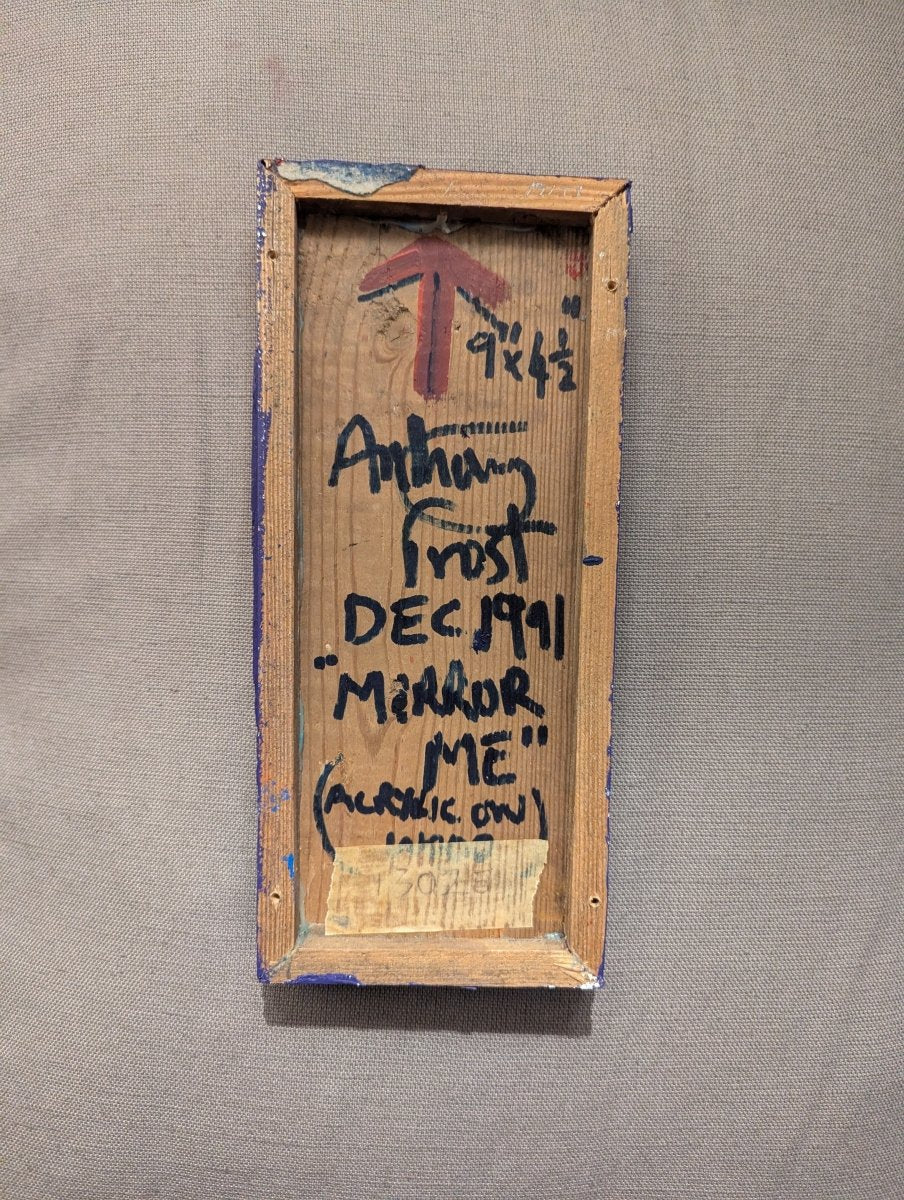 9" x 4 1/2"
Anthony
Frost
DEC. 1991
"MIRROR
ME"
(ACRYLIC ON
WOOD